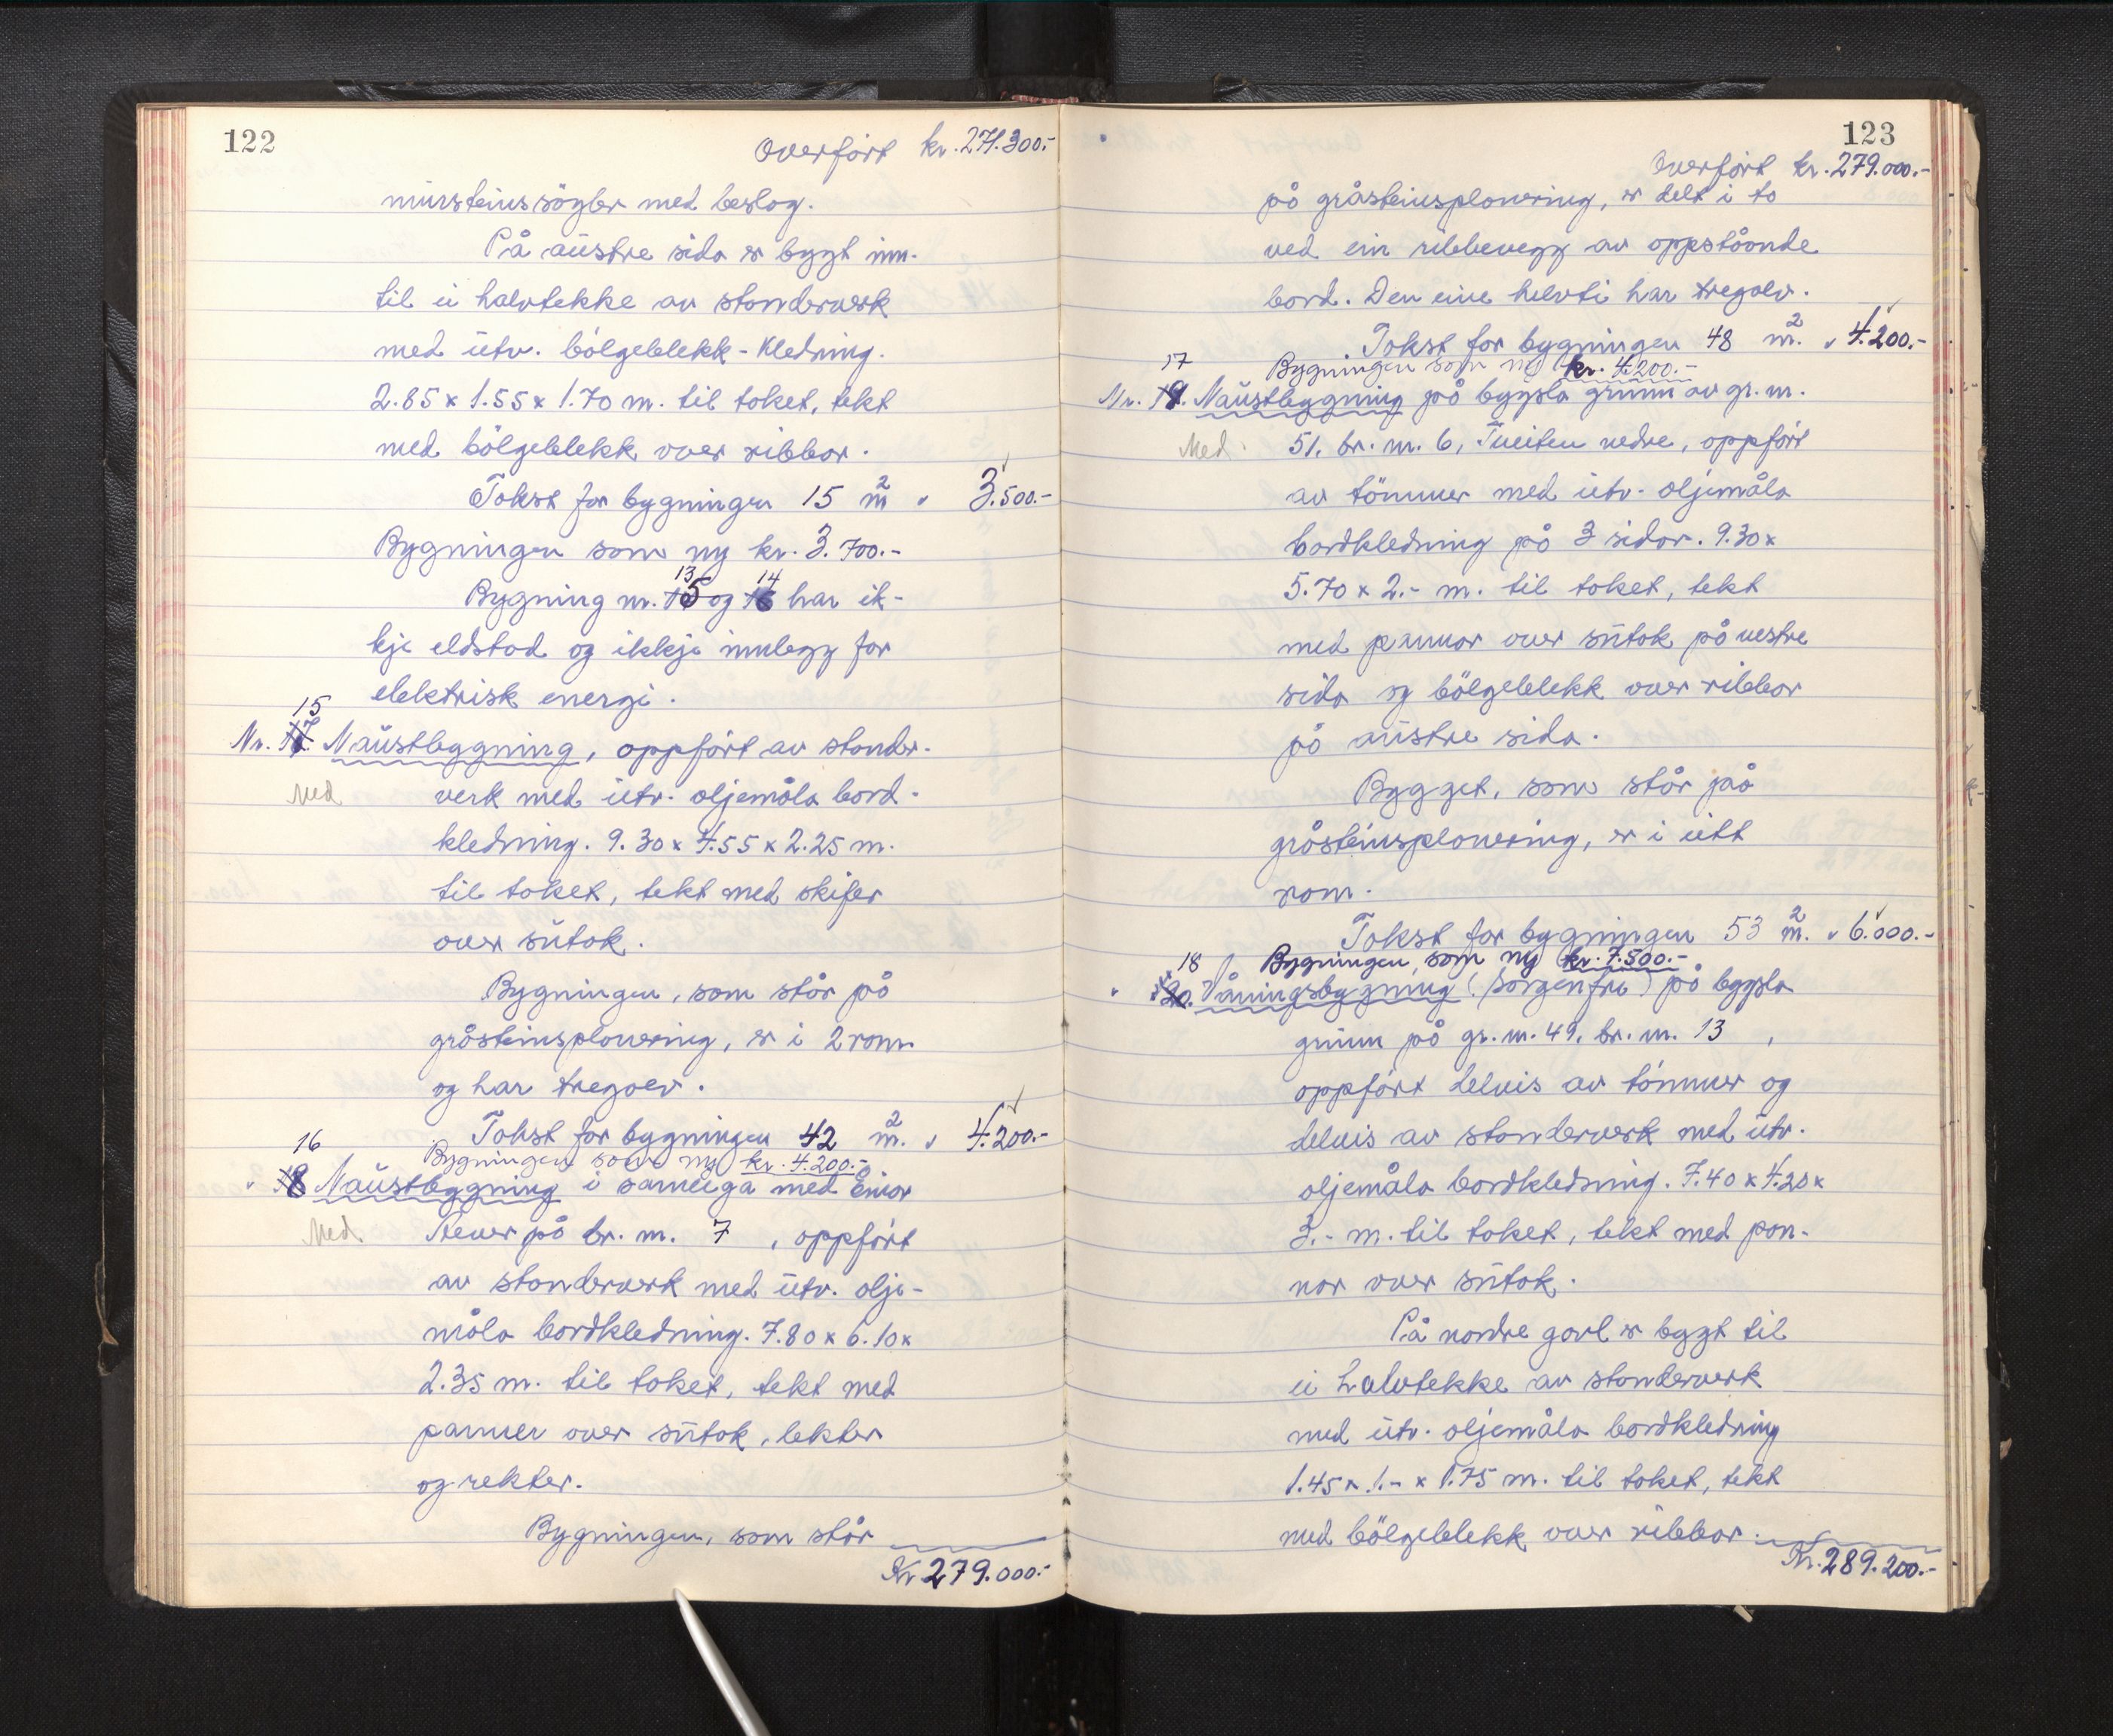 122
Overført kr. 271.300.-
mursteinssøyler med beslag.
På austre sida er bygt inn-
til ei halvtekke av standerverk
med utv. bølgeblekk-kledning.
2.85 x 1.55 x 1.70 m. til taket, tekt
med bølgeblekk over ribbor.
Takst for bygningen 15 m² " 3.500.-
Bygningen som ny kr. 3.700.-
13 14
Bygning nr. 15 og 16 har ik-
kje eldstad og ikkje innlegg for
elektrisk energi.
15
Nr. 17. Naustbygning, oppført av stander-
Med verk med utv. oljemåla bord-
kledning. 9.30 x 4.55 x 2.25 m.
til taket, tekt med skifer
over sutak.
Bygningen, som står på
gråsteinsplanering, er i 2 rom
og har tregolv.
Takst for bygningen 42 m². " 4.200.-
16
Bygningen som ny kr. 4.200.-
" 18 Naustbygning i sameiga med
Med. på br. nr. 7, oppført
av standerverk med utv. olje-
måla bordkledning. 7.80 x 6.10 x
2.35 m. til taket, tekt med
panner over sutak, lekter
og rekter.
Bygningen, som står
Kr 279.000.-
123
Overført kr. 279.000.-
på gråsteinsplanering, er delt i to
ved ein ribbevegg av oppståande
bord. Den eine helvti har tregolv.
Takst for bygningen 48 m². " 4.200.-
17
Bygningen som ny kr. 4.200.-
Nr. 19. Naustbygning på bygsla grunn av gr. nr.
Med. 51, br. nr. 6, Tveiten nedre, oppført
av tömmer med utv. oljemåla
bordkledning på 3 sidor. 9.30 x
5.70 x 2.- m. til taket, tekt
med pannor over sutak på vestre
sida og bölgeblekk over ribbor
på austre sida.
Bygget, som står på
gråsteinsplanering, er i eitt
rom.
Takst for bygningen 53 m². " 6.000.-
18
Bygningen, som ny kr. 7.500.-
" 20. Våningsbygning (Sorgenfri) på bygsla
grunn på gr. nr. 49, br. nr. 13 ,
oppført delvis av tömmer og
delvis av standerverk med utv.
oljemåla bordkledning. 7.40 x 4.20 x
3.- m. til taket, tekt med pan-
nor over sutak.
På nordre gavl er bygt til
ei halvtekke av standerverk
med utv. oljemåla bordkledning
1.45 x 1.- x 1.75 m. til taket, tekt
med bölgeblekk over ribbor.
Kr. 289.200.-